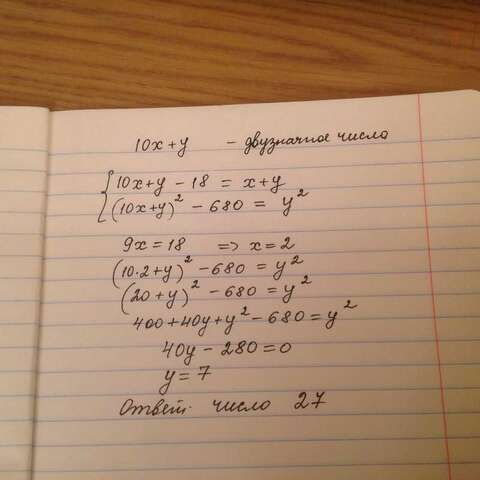 10x+y - двузначное число
{10x+y - 18 = x+y
(10x+y)² - 680 = y²
9x = 18 => x = 2
(10·2+y)² - 680 = y²
(20+y)² - 680 = y²
400+40y+y² - 680 = y²
40y - 280 = 0
y = 7
Ответ. число 27